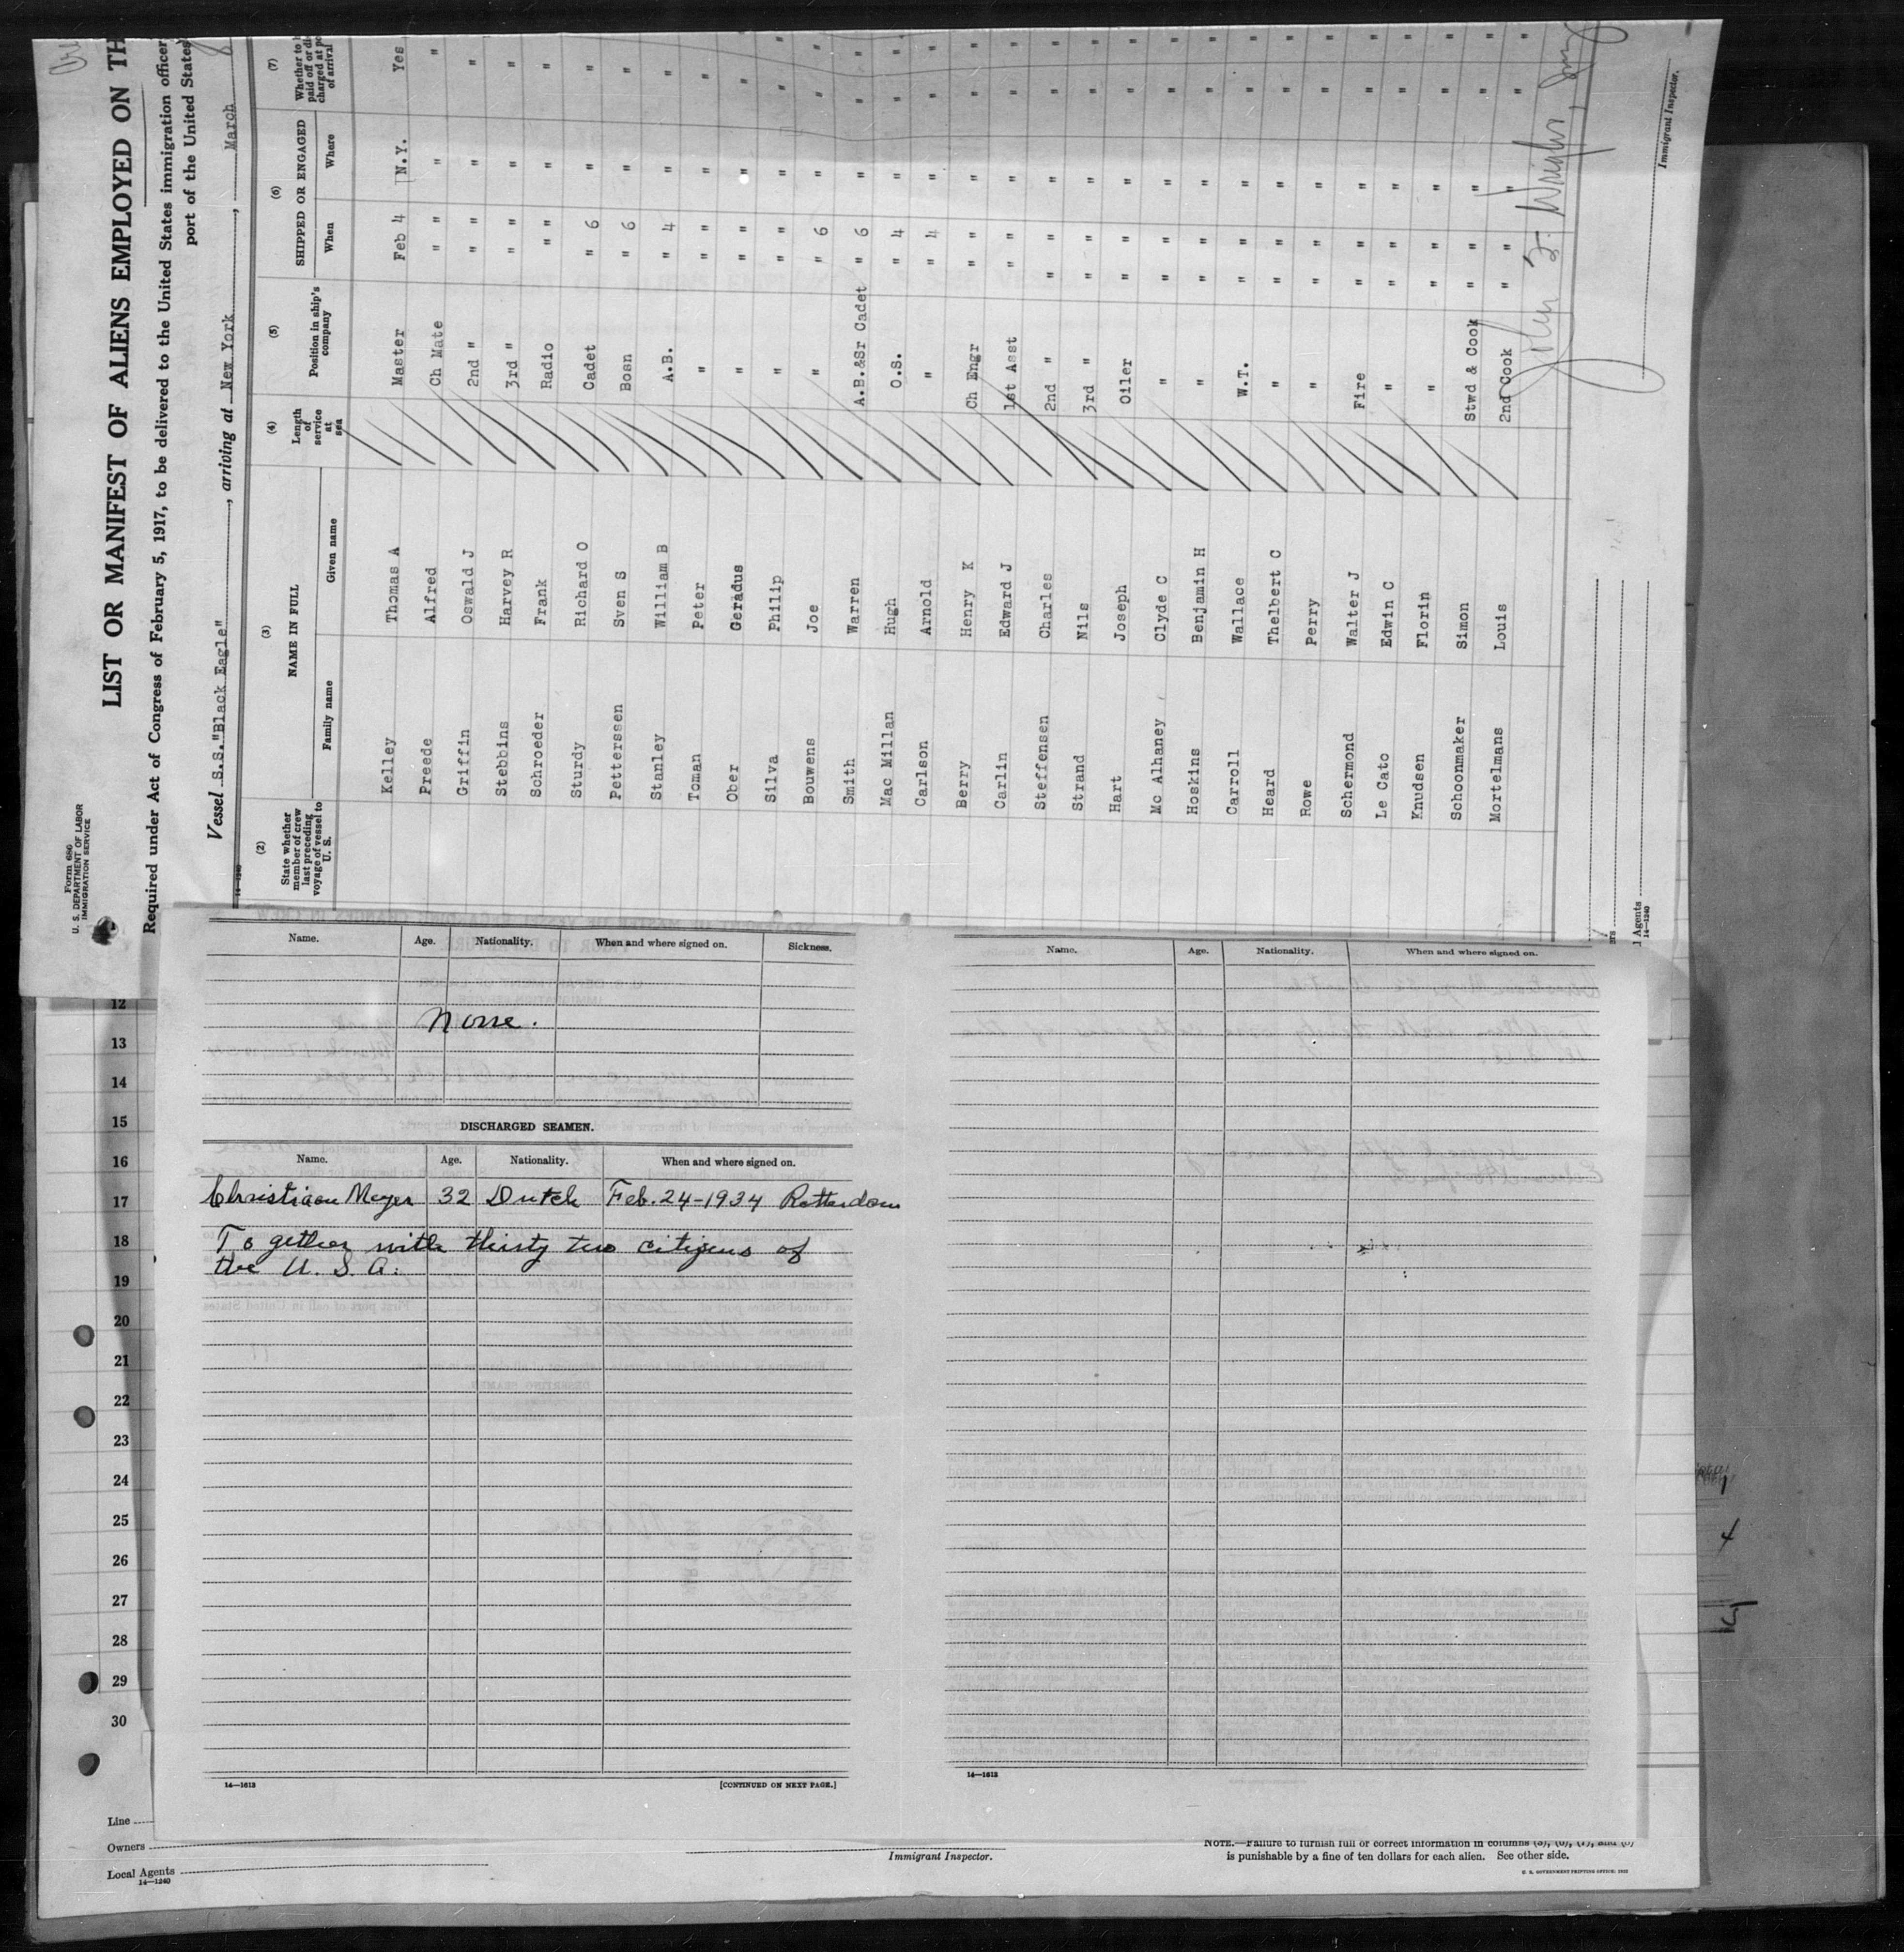 Form 686
U. S. DEPARTMENT OF LABOR
IMMIGRATION SERVICE
LIST OR MANIFEST OF ALIENS EMPLOYED ON TH
Required under Act of Congress of February 5, 1917, to be delivered to the United States immigration officer
port of the United States
Vessel S.S."Black Eagle", arriving at New York, March
14—1240
(2) (3) (4) (5) (6) (7)
State whether member of crew last preceding voyage of vessel to U. S.
NAME IN FULL
Family name Given name
Length of service at sea
Position in ship's company
SHIPPED OR ENGAGED
When Where
Whether to
paid off or di
charged at po
of arrival
Kelley Thomas A Master Feb 4 N.Y. Yes
Preede Alfred Ch Mate " " " "
Griffin Oswald J 2nd " " " " "
Stebbins Harvey R 3rd " " " " "
Schroeder Frank Radio " " " "
Sturdy Richard O Cadet " 6 " "
Petterssen Sven S Bosn " 6 " "
Stanley William B A.B. " 4 " "
Toman Peter " " " " "
Ober Geradus " " " " "
Silva Philip " " " " "
Bouwens Joe " " 6 " "
Smith Warren A.B.&Sr Cadet " 6 " "
Mac Millan Hugh O.S. " 4 " "
Carlson Arnold " " 4 " "
Berry Henry K Ch Engr " " " "
Carlin Edward J 1st Asst " " " "
Steffensen Charles 2nd " " " " "
Strand Nils 3rd " " " " "
Hart Joseph Oiler " " " "
Mc Alhaney Clyde C " " " " "
Hoskins Benjamin H " " " " "
Carroll Wallace W.T. " " " "
Heard Thelbert C " " " " "
Rowe Perry " " " " "
Schermond Walter J Fire " " " "
Le Cato Edwin C " " " " "
Knudsen Florin " " " " "
Schoonmaker Simon Stwd & Cook " " " "
Mortelmans Louis 2nd Cook " " " "
John F. Wright
Immigrant Inspector.
ers
l Agents
14—1240
Name. Age. Nationality. When and where signed on. Sickness.
None.
DISCHARGED SEAMEN.
Name. Age. Nationality. When and where signed on.
Christiaan Meyer 32 Dutch Feb. 24-1934 Rotterdam
Together with thirty two citizens of
the U. S. A.
14—1613 [CONTINUED ON NEXT PAGE.]
Name. Age. Nationality. When and where signed on.
14—1613
12
13
14
15
16
17
18
19
20
21
22
23
24
25
26
27
28
29
30
Line
Owners
Local Agents
14—1240
Immigrant Inspector.
NOTE.—Failure to furnish full or correct information in columns (3), (6), (7), and (8)
is punishable by a fine of ten dollars for each alien. See other side.
U. S. GOVERNMENT PRINTING OFFICE: 1932